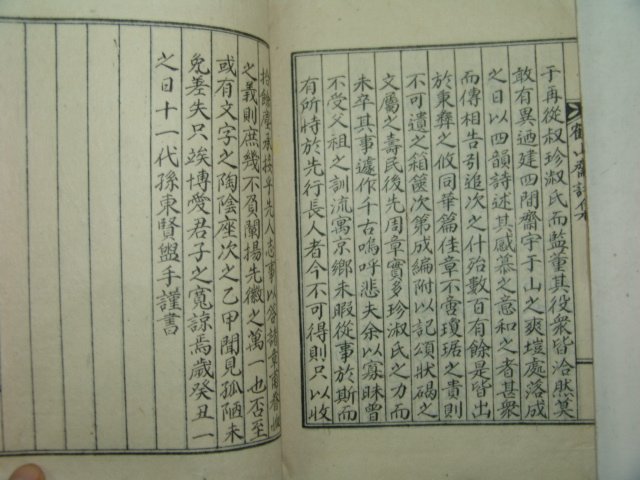 于再從叔珍淑氏而監董其役衆皆洽然莫
敢有異迺建四間齋宇于山之爽塏處落成
之日以四韻詩述其感慕之意和之者甚衆
而傳相告引追次之什殆數百有餘是皆出
於秉彛之攸同華篇佳章不啻瓊琚之貴則
不可遺之箱篋次第成編附以記頌狀碣之
文屬之壽民後先周章實多珍淑氏之力而
未卒其事遽作千古嗚呼悲夫余以寡昧曾
不受父祖之訓流寓京鄕未暇從事於斯而
有所恃於先行長人者今不可得則只以收
拾餘塵承按乎先人志事以答諸章甫眷
之義則庶幾不負闡揚先徽之萬一也否至
或有文字之陶陰座次之乙甲聞見孤陋未
免差失只竢博愛君子之寬諒焉歲癸丑一
之日十一代孫東賢盥手謹書
鶴山齋詩集